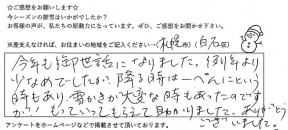 ☆ご感想をお願いします☆
今シーズンの排雪はいかがでしたか？
お客様の声が、私たちの原動力になっています。ぜひ、ご感想をお聞かせ下さい。
※差支えなければ、お住まいの地域をご記入ください…(札幌市)(白石区)
今年も御世話になりました。例年より
少なめでしたが、降る時は一ぺんにという
時もあり、雪かきが大変な時もあったのです
が、もっていってもらえて助かりました。ありがとう
ございました。
アンケートをホームページなどで掲載させて頂いております。